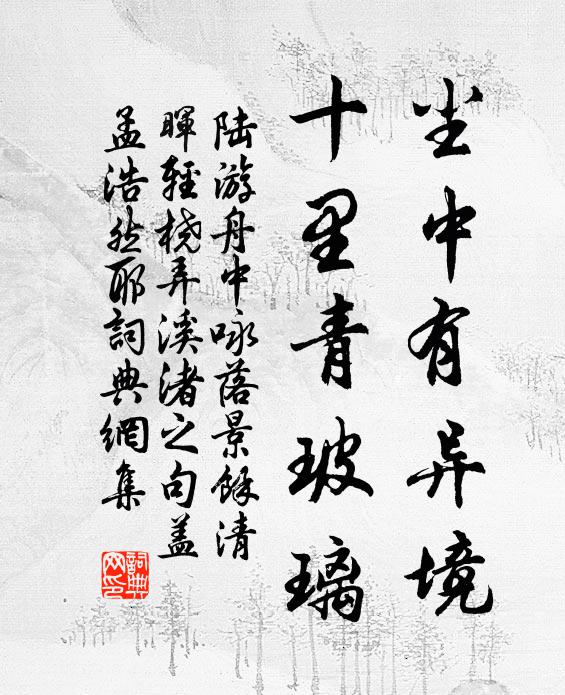 尘中有异境
十里青玻璃
陆游舟中咏落景馀清
暉輕桡弄溪渚之句盖
孟浩然耶詞典網集
詞典网印